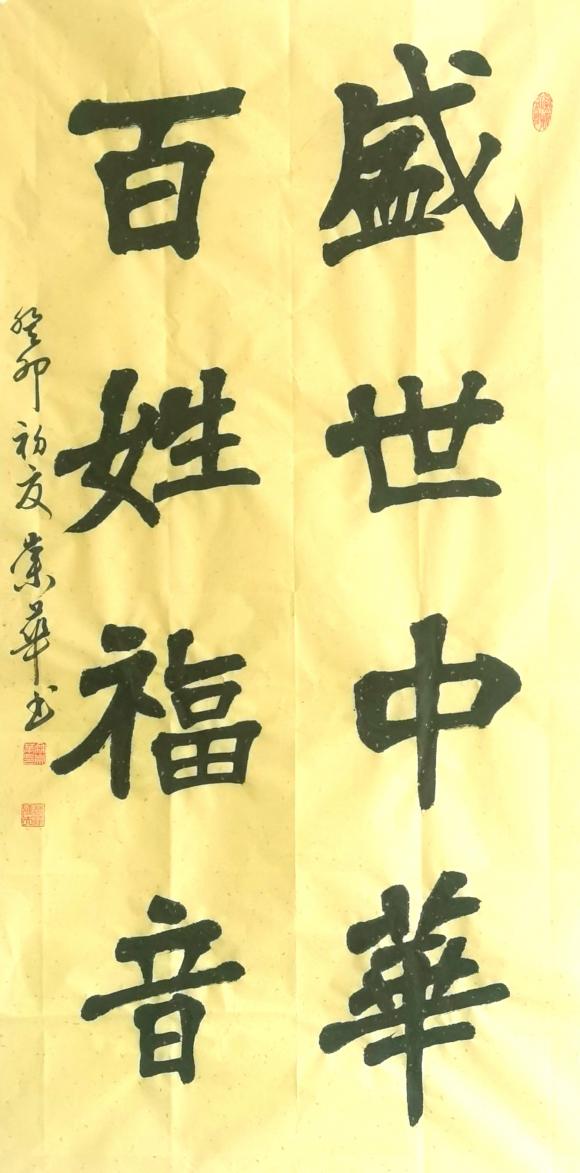 盛世中華
百姓福音
癸卯初夏崇華书